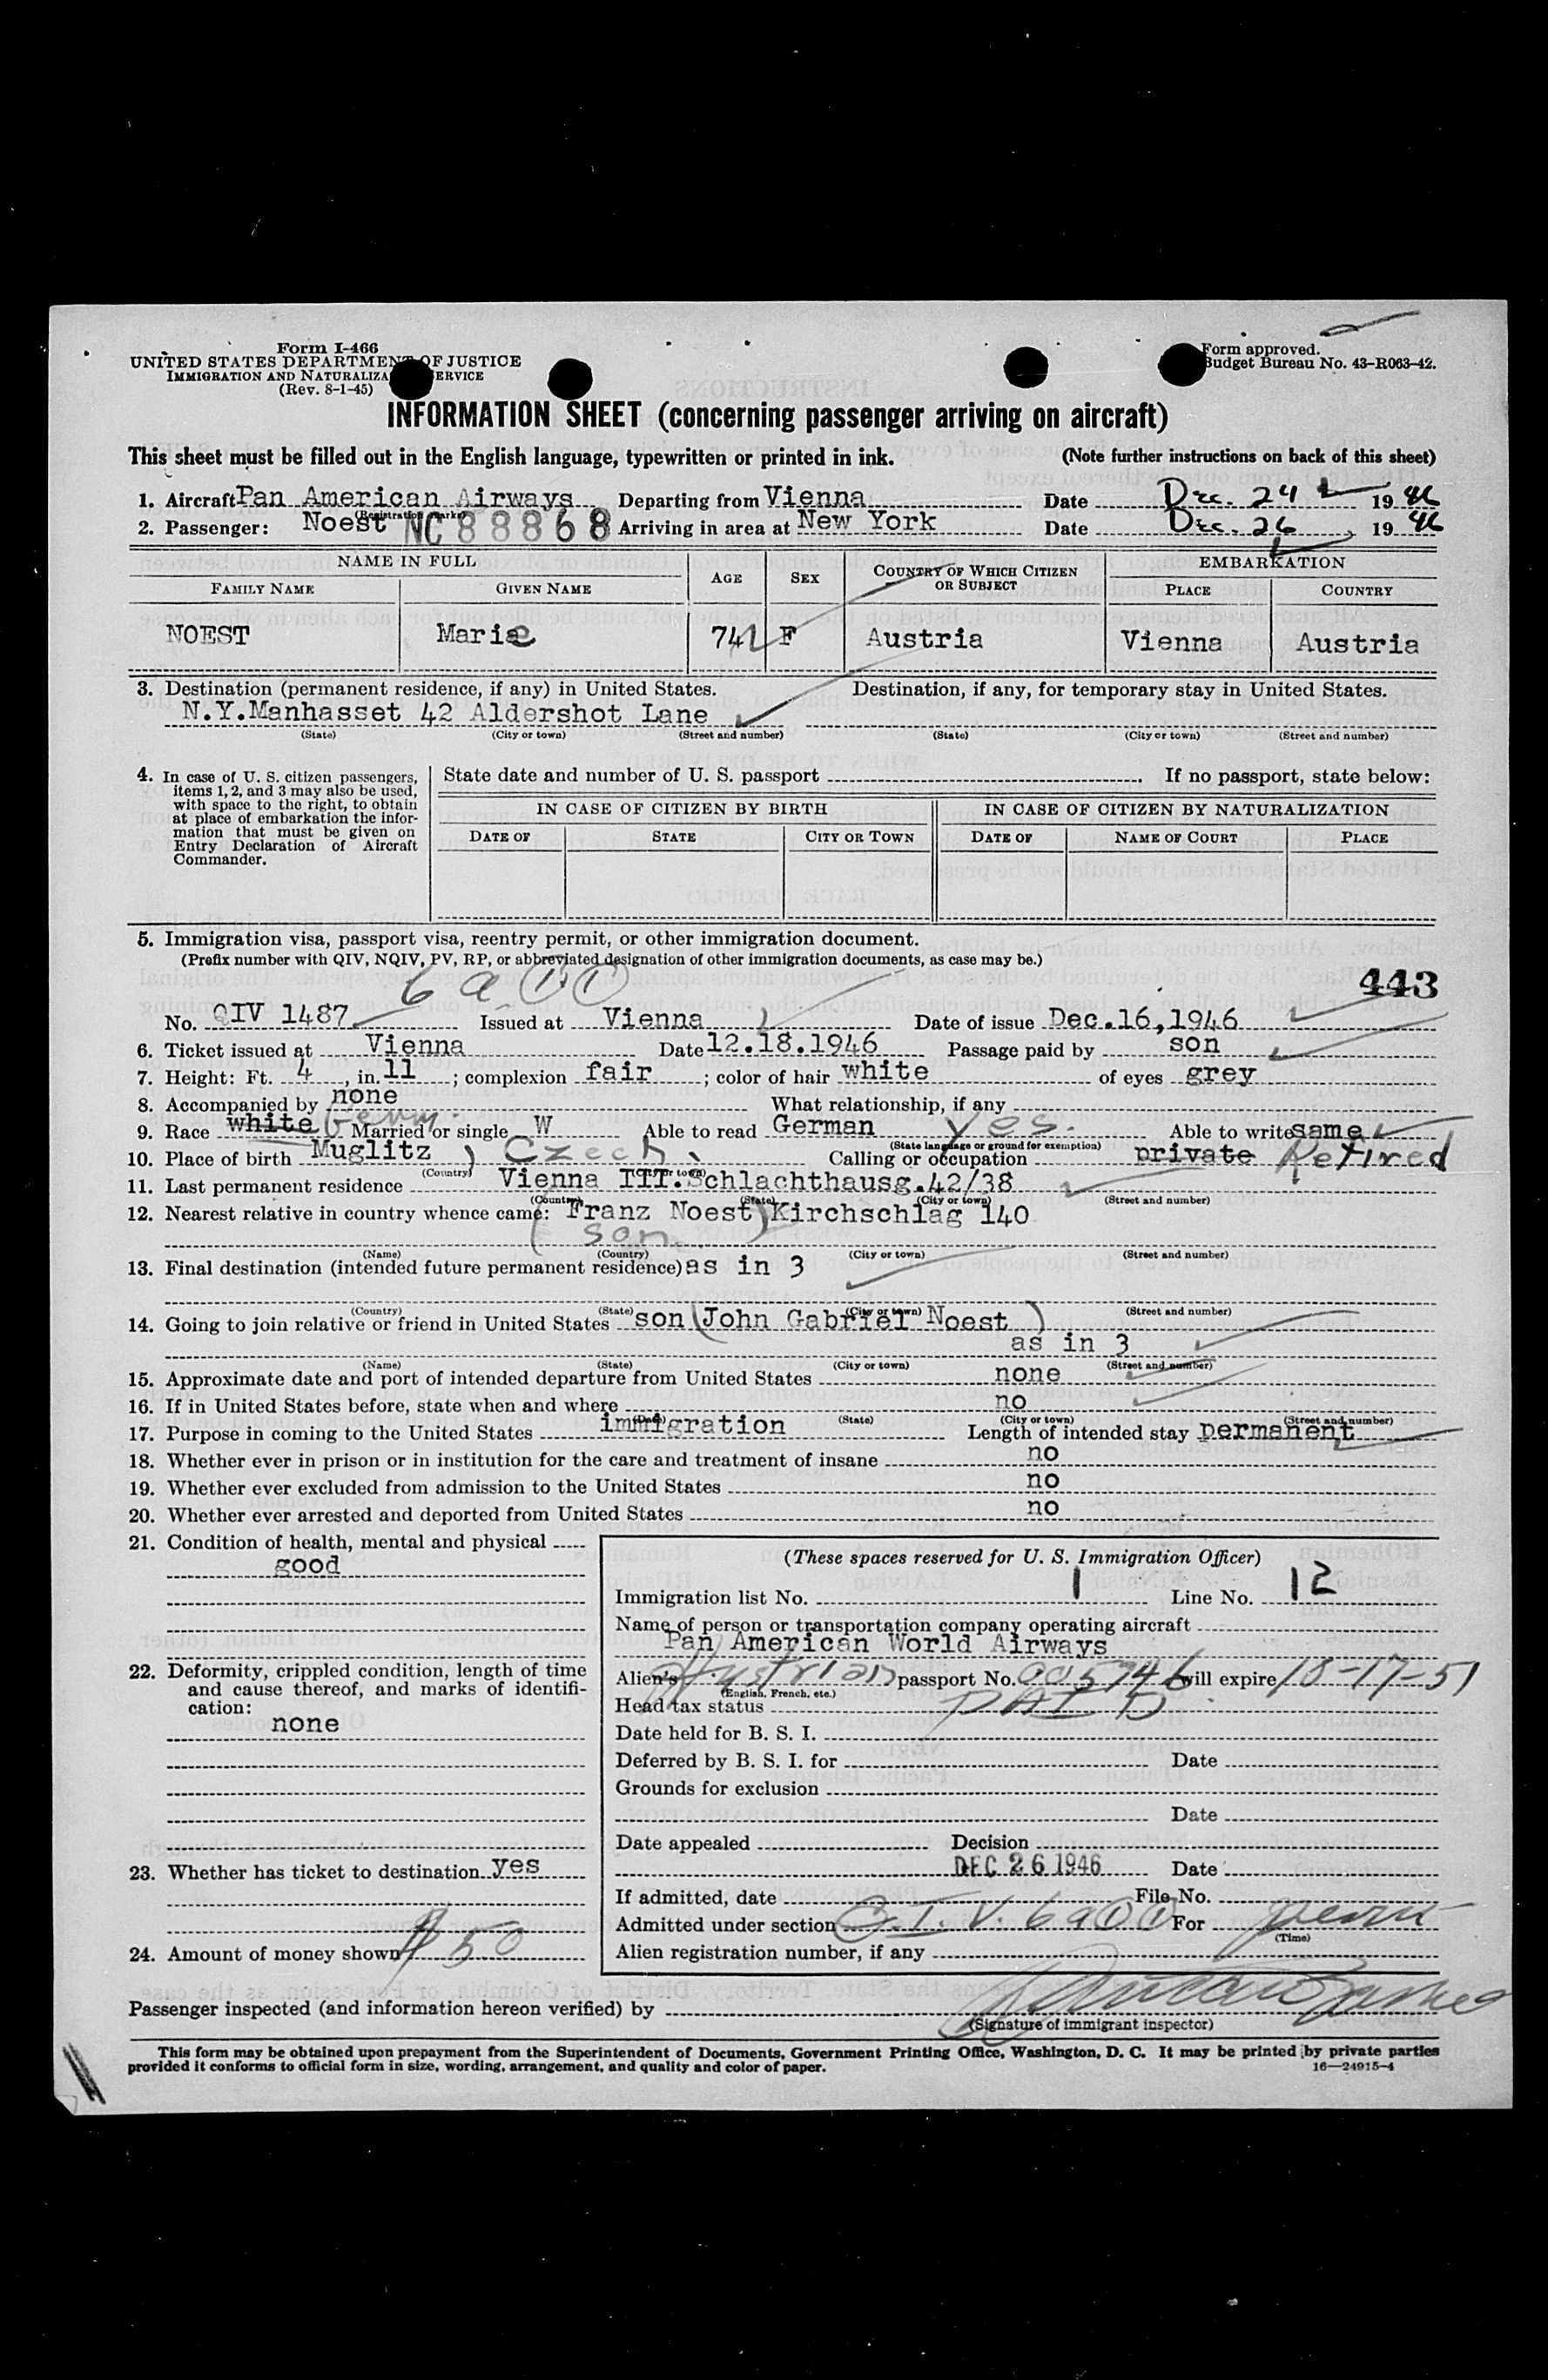 Form I-466
UNITED STATES DEPARTMENT OF JUSTICE
IMMIGRATION AND NATURALIZA ERVICE
(Rev. 8-1-45)
Form approved.
Budget Bureau No. 43-R063-42.
INFORMATION SHEET (concerning passenger arriving on aircraft)
This sheet must be filled out in the English language, typewritten or printed in ink. (Note further instructions on back of this sheet)
1. Aircraft Pan American Airways Departing from Vienna Date Dec. 24 19 46
(Registration marks)
2. Passenger: Noest NC 88868 Arriving in area at New York Date Dec. 26, 19 46
NAME IN FULL AGE SEX COUNTRY OF WHICH CITIZEN OR SUBJECT EMBARKATION
FAMILY NAME GIVEN NAME PLACE COUNTRY
NOEST Marie 74 F Austria Vienna Austria
3. Destination (permanent residence, if any) in United States. Destination, if any, for temporary stay in United States.
N.Y. Manhasset 42 Aldershot Lane
(State) (City or town) (Street and number) (State) (City or town) (Street and number)
4. In case of U. S. citizen passengers, items 1, 2, and 3 may also be used, with space to the right, to obtain at place of embarkation the information that must be given on Entry Declaration of Aircraft Commander.
State date and number of U. S. passport If no passport, state below:
IN CASE OF CITIZEN BY BIRTH IN CASE OF CITIZEN BY NATURALIZATION
DATE OF STATE CITY OR TOWN DATE OF NAME OF COURT PLACE
5. Immigration visa, passport visa, reentry permit, or other immigration document.
(Prefix number with QIV, NQIV, PV, RP, or abbreviated designation of other immigration documents, as case may be.)
6 a (1)(1) 443
No. QIV 1487 Issued at Vienna Date of issue Dec.16,1946
6. Ticket issued at Vienna Date 12.18.1946 Passage paid by son
7. Height: Ft. 4, in. 11; complexion fair; color of hair white of eyes grey
8. Accompanied by none What relationship, if any
9. Race white Germ. Married or single W Able to read German yes. Able to write same
(State language or ground for exemption)
10. Place of birth Muglitz Czech. Calling or occupation private Retired
(Country) (City or town)
11. Last permanent residence Vienna III. Schlachthausg.42/38
(Country) (State) (City or town) (Street and number)
12. Nearest relative in country whence came: Franz Noest Kirchschlag 140
(son)
(Name) (Country) (City or town) (Street and number)
13. Final destination (intended future permanent residence) as in 3
(Country) (State) (City or town) (Street and number)
14. Going to join relative or friend in United States son (John Gabriel Noest)
as in 3
(Name) (State) (City or town) (Street and number)
15. Approximate date and port of intended departure from United States none
16. If in United States before, state when and where no
(Date) (State) (City or town) (Street and number)
17. Purpose in coming to the United States immigration Length of intended stay permanent
18. Whether ever in prison or in institution for the care and treatment of insane no
19. Whether ever excluded from admission to the United States no
20. Whether ever arrested and deported from United States no
21. Condition of health, mental and physical
good
22. Deformity, crippled condition, length of time and cause thereof, and marks of identification:
none
23. Whether has ticket to destination yes
24. Amount of money shown $50
(These spaces reserved for U. S. Immigration Officer)
Immigration list No. 1 Line No. 12
Name of person or transportation company operating aircraft
Pan American World Airways
Alien's Austrian passport No. 005746 will expire 10-17-51
(English, French, etc.)
Head tax status PAID
Date held for B. S. I.
Deferred by B. S. I. for Date
Grounds for exclusion
Date
Date appealed Decision
DEC 26 1946 Date
If admitted, date File No.
Admitted under section Q.I.V. 6a(1)(1) For perm
(Time)
Alien registration number, if any
Passenger inspected (and information hereon verified) by
(Signature of immigrant inspector)
This form may be obtained upon prepayment from the Superintendent of Documents, Government Printing Office, Washington, D. C. It may be printed by private parties
provided it conforms to official form in size, wording, arrangement, and quality and color of paper. 16—24915-4